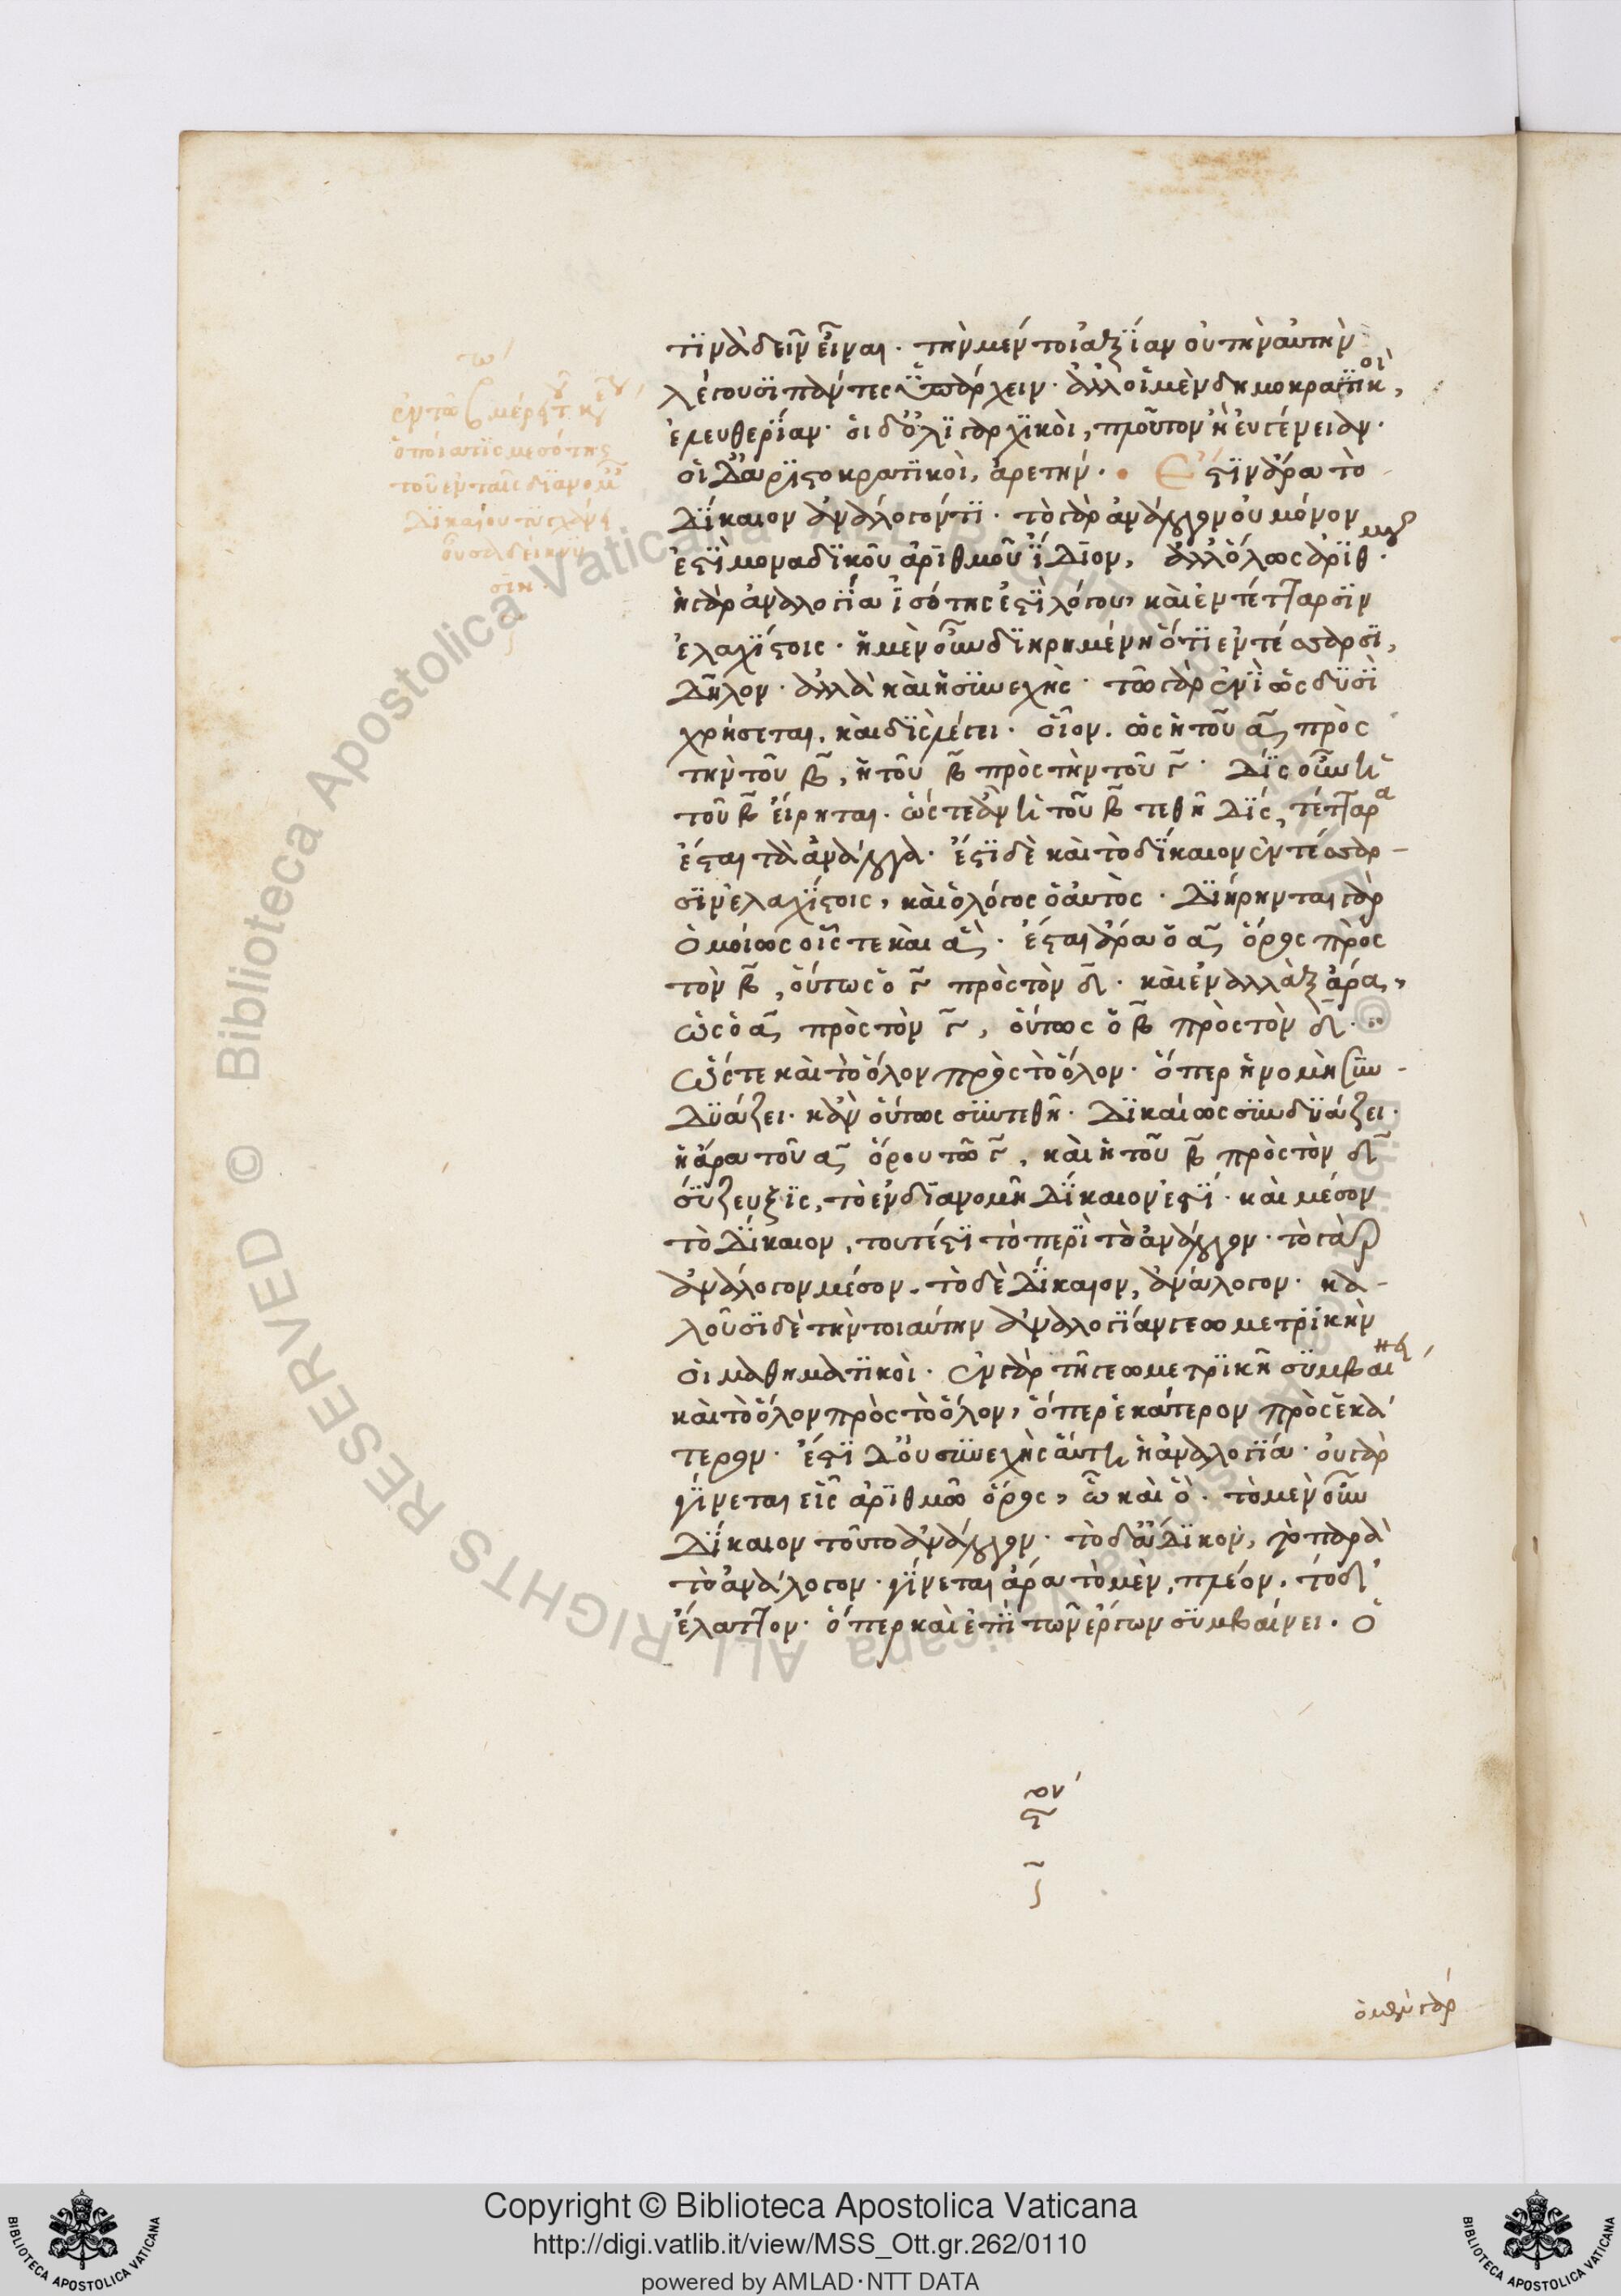 τινὰ δεῖν εἶναι. τὴν μέντοι ἀξίαν οὐ τὴν αὐτὴν
λέγουσι πάντες ὑπάρχειν. ἀλλ' οἱ μὲν δημοκρατικοὶ,
ἐλευθερίαν. οἱ δ' ὀλιγαρχικοὶ, πλοῦτον ἢ εὐγένειαν.
οἱ δ' ἀριστοκρατικοὶ, ἀρετήν. Ἔστιν ἄρα τὸ
δίκαιον ἀνάλογόν τι. τὸ γὰρ ἀνάλογον οὐ μόνον
ἐστὶ μοναδικοῦ ἀριθμοῦ ἴδιον, ἀλλ' ὅλως ἀριθμοῦ.
ἡ γὰρ ἀναλογία ἰσότης ἐστὶ λόγου, καὶ ἐν τέτταρσιν
ἐλαχίστοις. ἡ μὲν οὖν διῃρημένη ὅτι ἐν τέσσαρσι,
δῆλον. ἀλλὰ καὶ ἡ συνεχής. τῷ γὰρ ἑνὶ ὡς δυσὶ
χρήσεται, καὶ δὶς λέγει. οἷον. ὡς ἡ τοῦ α πρὸς
τὴν τοῦ β, ἡ τοῦ β πρὸς τὴν τοῦ γ. δὶς οὖν ἡ
τοῦ β εἴρηται. ὥστε ἂν ἡ τοῦ β τεθῇ δὶς, τέτταρα
ἔσται τὰ ἀνάλογα. ἔστι δὲ καὶ τὸ δίκαιον ἐν τέσσαρ-
σιν ἐλαχίστοις, καὶ ὁ λόγος ὁ αὐτός. διῄρηνται γὰρ
ὁμοίως οἷς τε καὶ ἅ. ἔσται ἄρα ὁ α ὅρος πρὸς
τὸν β, οὕτως ὁ γ πρὸς τὸν δ. καὶ ἐναλλὰξ ἄρα,
ὡς ὁ α πρὸς τὸν γ, οὕτως ὁ β πρὸς τὸν δ.
ὥστε καὶ τὸ ὅλον πρὸς τὸ ὅλον. ὅπερ ἡ νομὴ συν-
δυάζει. κἂν οὕτως συντεθῇ. δικαίως συνδυάζει.
ἡ ἄρα τοῦ α ὅρου τῷ γ, καὶ ἡ τοῦ β πρὸς τὸν δ
σύζευξις, τὸ ἐν διανομῇ δίκαιον ἐστί. καὶ μέσον
τὸ δίκαιον, τουτέστι τὸ περὶ τὸ ἀνάλογον. τὸ γὰρ
ἀνάλογον μέσον. τὸ δὲ δίκαιον, ἀνάλογον. κα-
λοῦσι δὲ τὴν τοιαύτην ἀναλογίαν γεωμετρικὴν
οἱ μαθηματικοὶ. ἐν γὰρ τῇ γεωμετρικῇ συμβαίνει
καὶ τὸ ὅλον πρὸς τὸ ὅλον, ὅπερ ἑκάτερον πρὸς ἑκά
τερον. ἔστι δ' οὐ συνεχὴς αὕτη ἡ ἀναλογία. οὐ γὰρ
γίνεται εἷς ἀριθμῷ ὅρος, ᾧ καὶ ὅ. τὸ μὲν οὖν
δίκαιον τοῦτο ἀνάλογον. τὸ δ' ἄδικον, τὸ παρὰ
τὸ ἀνάλογον. γίνεται ἄρα τὸ μὲν, πλέον, τὸ δ'
ἔλαττον. ὅπερ καὶ ἐπὶ τῶν ἔργων συμβαίνει. ὁ
ὁ μὲν γὰρ
Copyright © Biblioteca Apostolica Vaticana
http://digi.vatlib.it/view/MSS_Ott.gr.262/0110
powered by AMLAD·NTT DATA
© Biblioteca Apostolica Vaticana ALL RIGHTS RESERVED
BIBLIOTECA APOSTOLICA VATICANA
BIBLIOTECA APOSTOLICA VATICANA